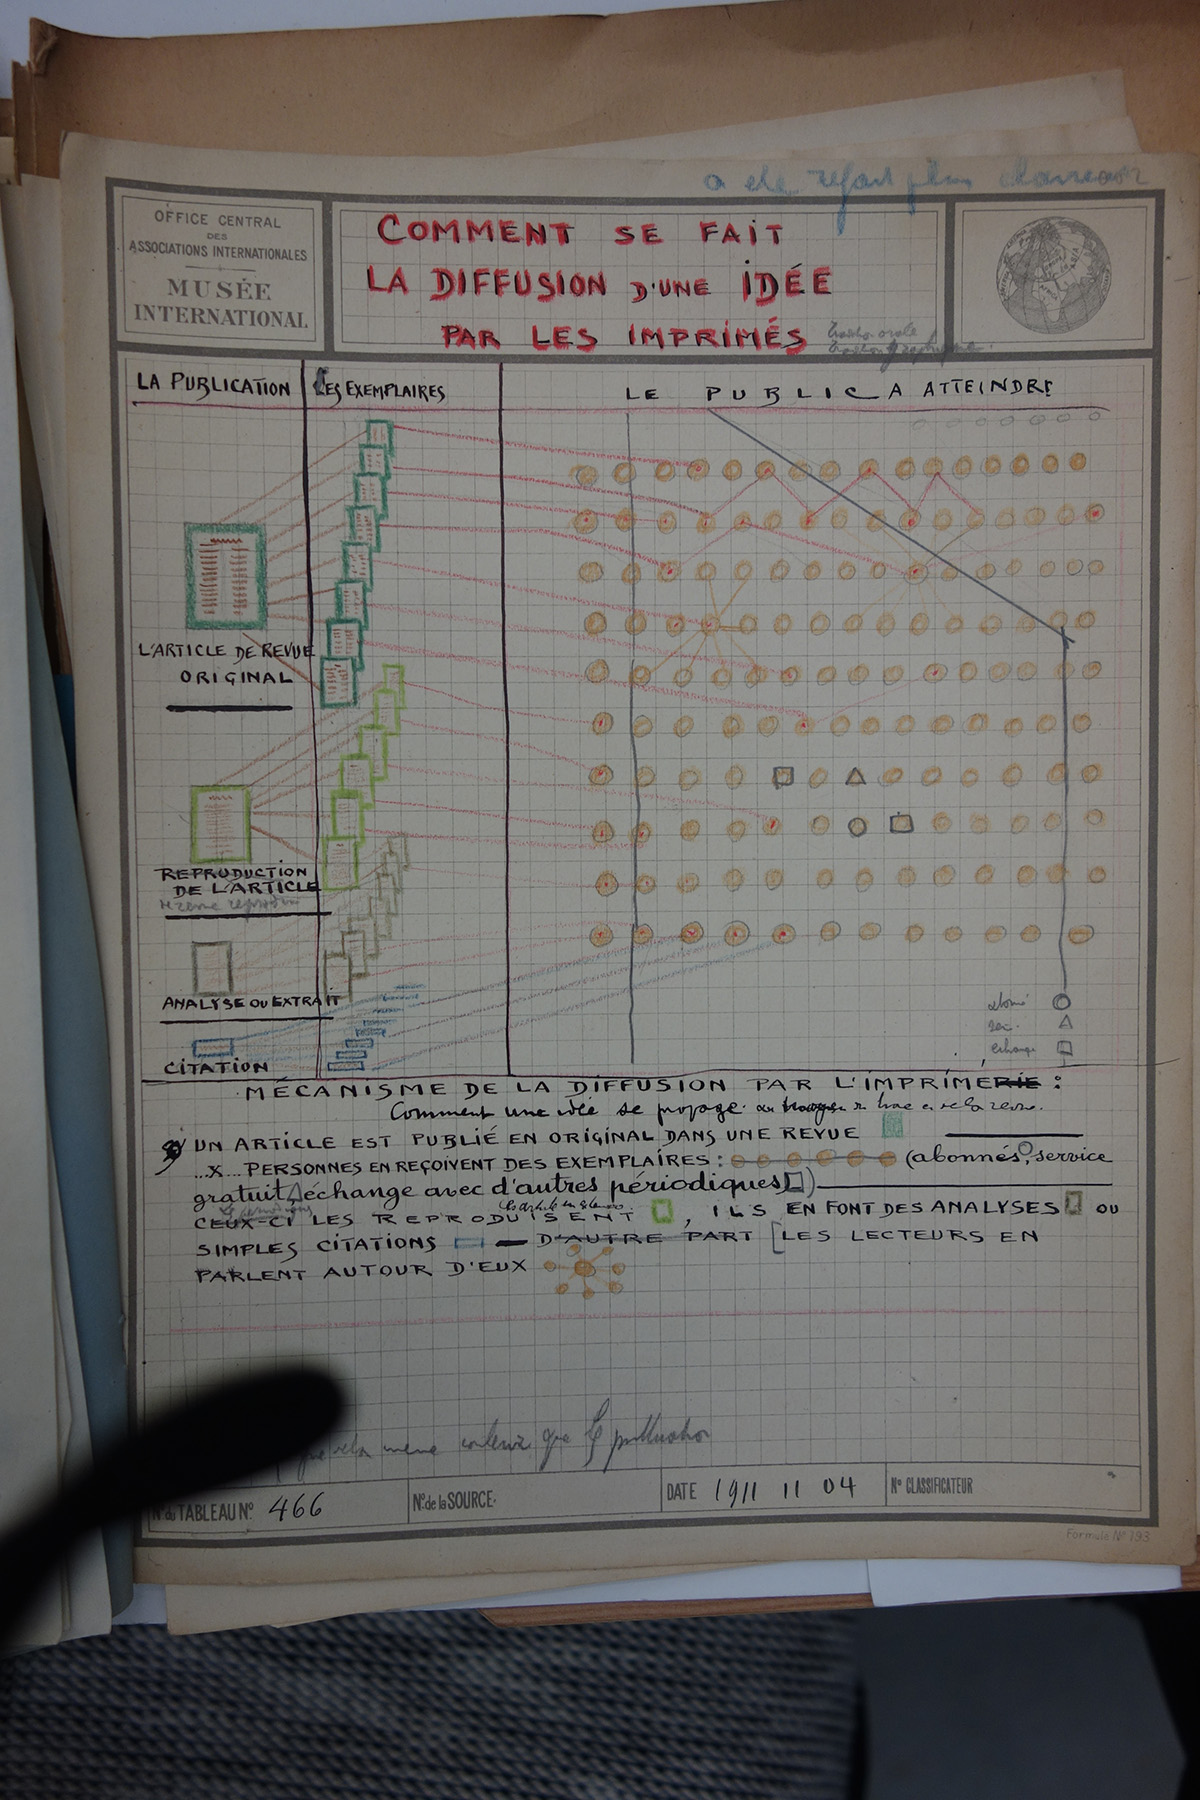 a été refait plus
OFFICE CENTRAL
DES
ASSOCIATIONS INTERNATIONALES
MUSÉE
INTERNATIONAL
COMMENT SE FAIT
LA DIFFUSION D'UNE IDÉE
PAR LES IMPRIMÉS
LA PUBLICATION
LES EXEMPLAIRES
LE PUBLIC A ATTEINDRE
L'ARTICLE DE REVUE
ORIGINAL
REPRODUCTION
DE L'ARTICLE
ANALYSE OU EXTRAIT
CITATION
abonné
serv.
échange
MÉCANISME DE LA DIFFUSION PAR L'IMPRIMÉRIE :
Comment une idée se propage
UN ARTICLE EST PUBLIÉ EN ORIGINAL DANS UNE REVUE
..X... PERSONNES EN REÇOIVENT DES EXEMPLAIRES : (abonnés, service
gratuit, échange avec d'autres périodiques)
CEUX-CI LES REPRODUISENT , ILS EN FONT DES ANALYSES OU
SIMPLES CITATIONS D'AUTRE PART [LES LECTEURS EN
PARLENT AUTOUR D'EUX
même couleur que
N° du TABLEAU N°. 466
N°. de la SOURCE.
DATE 1911 11 04
N° CLASSIFICATEUR
Formule N° 193